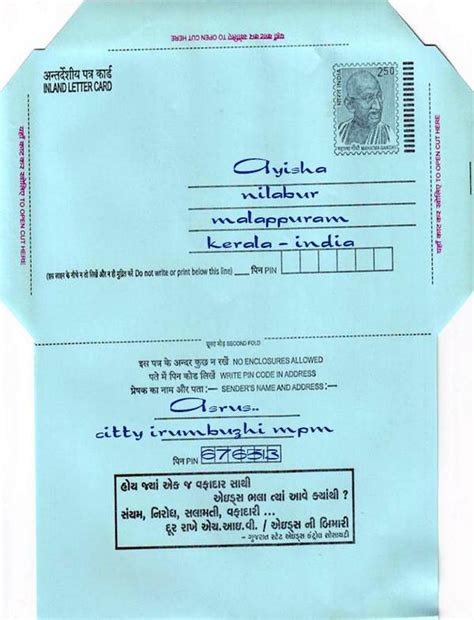 यहाँ काट कर खोलिए TO OPEN CUT HERE
अन्तर्देशीय पत्र कार्ड
INLAND LETTER CARD
भारत INDIA
2.50
महात्मा गाँधी MAHATMA GANDHI
यहाँ काट कर खोलिए TO OPEN CUT HERE
यहाँ काट कर खोलिए TO OPEN CUT HERE
Ayisha
nilabur
malappuram
kerala - india
(इस लाइन के नीचे न तो लिखें और न ही मुद्रित करें Do not write or print below this line) पिन PIN
दूसरा मोड़ SECOND FOLD
इस पत्र के अन्दर कुछ न रखें NO ENCLOSURES ALLOWED
पते में पिन कोड लिखें WRITE PIN CODE IN ADDRESS
प्रेषक का नाम और पता :— SENDER'S NAME AND ADDRESS :—
Asrus..
citty irumbuzhi mpm
पिन PIN 676513
હોય જ્યાં એક જ વફાદાર સાથી
એઇડ્સ ભલા ત્યાં આવે ક્યાંથી ?
સંયમ, નિરોધ, સલામતી, વફાદારી ...
દૂર રાખે એચ.આઇ.વી. / એઇડ્સ ની બિમારી
- ગુજરાત સ્ટેટ એઇડ્સ કંટ્રોલ સોસાયટી